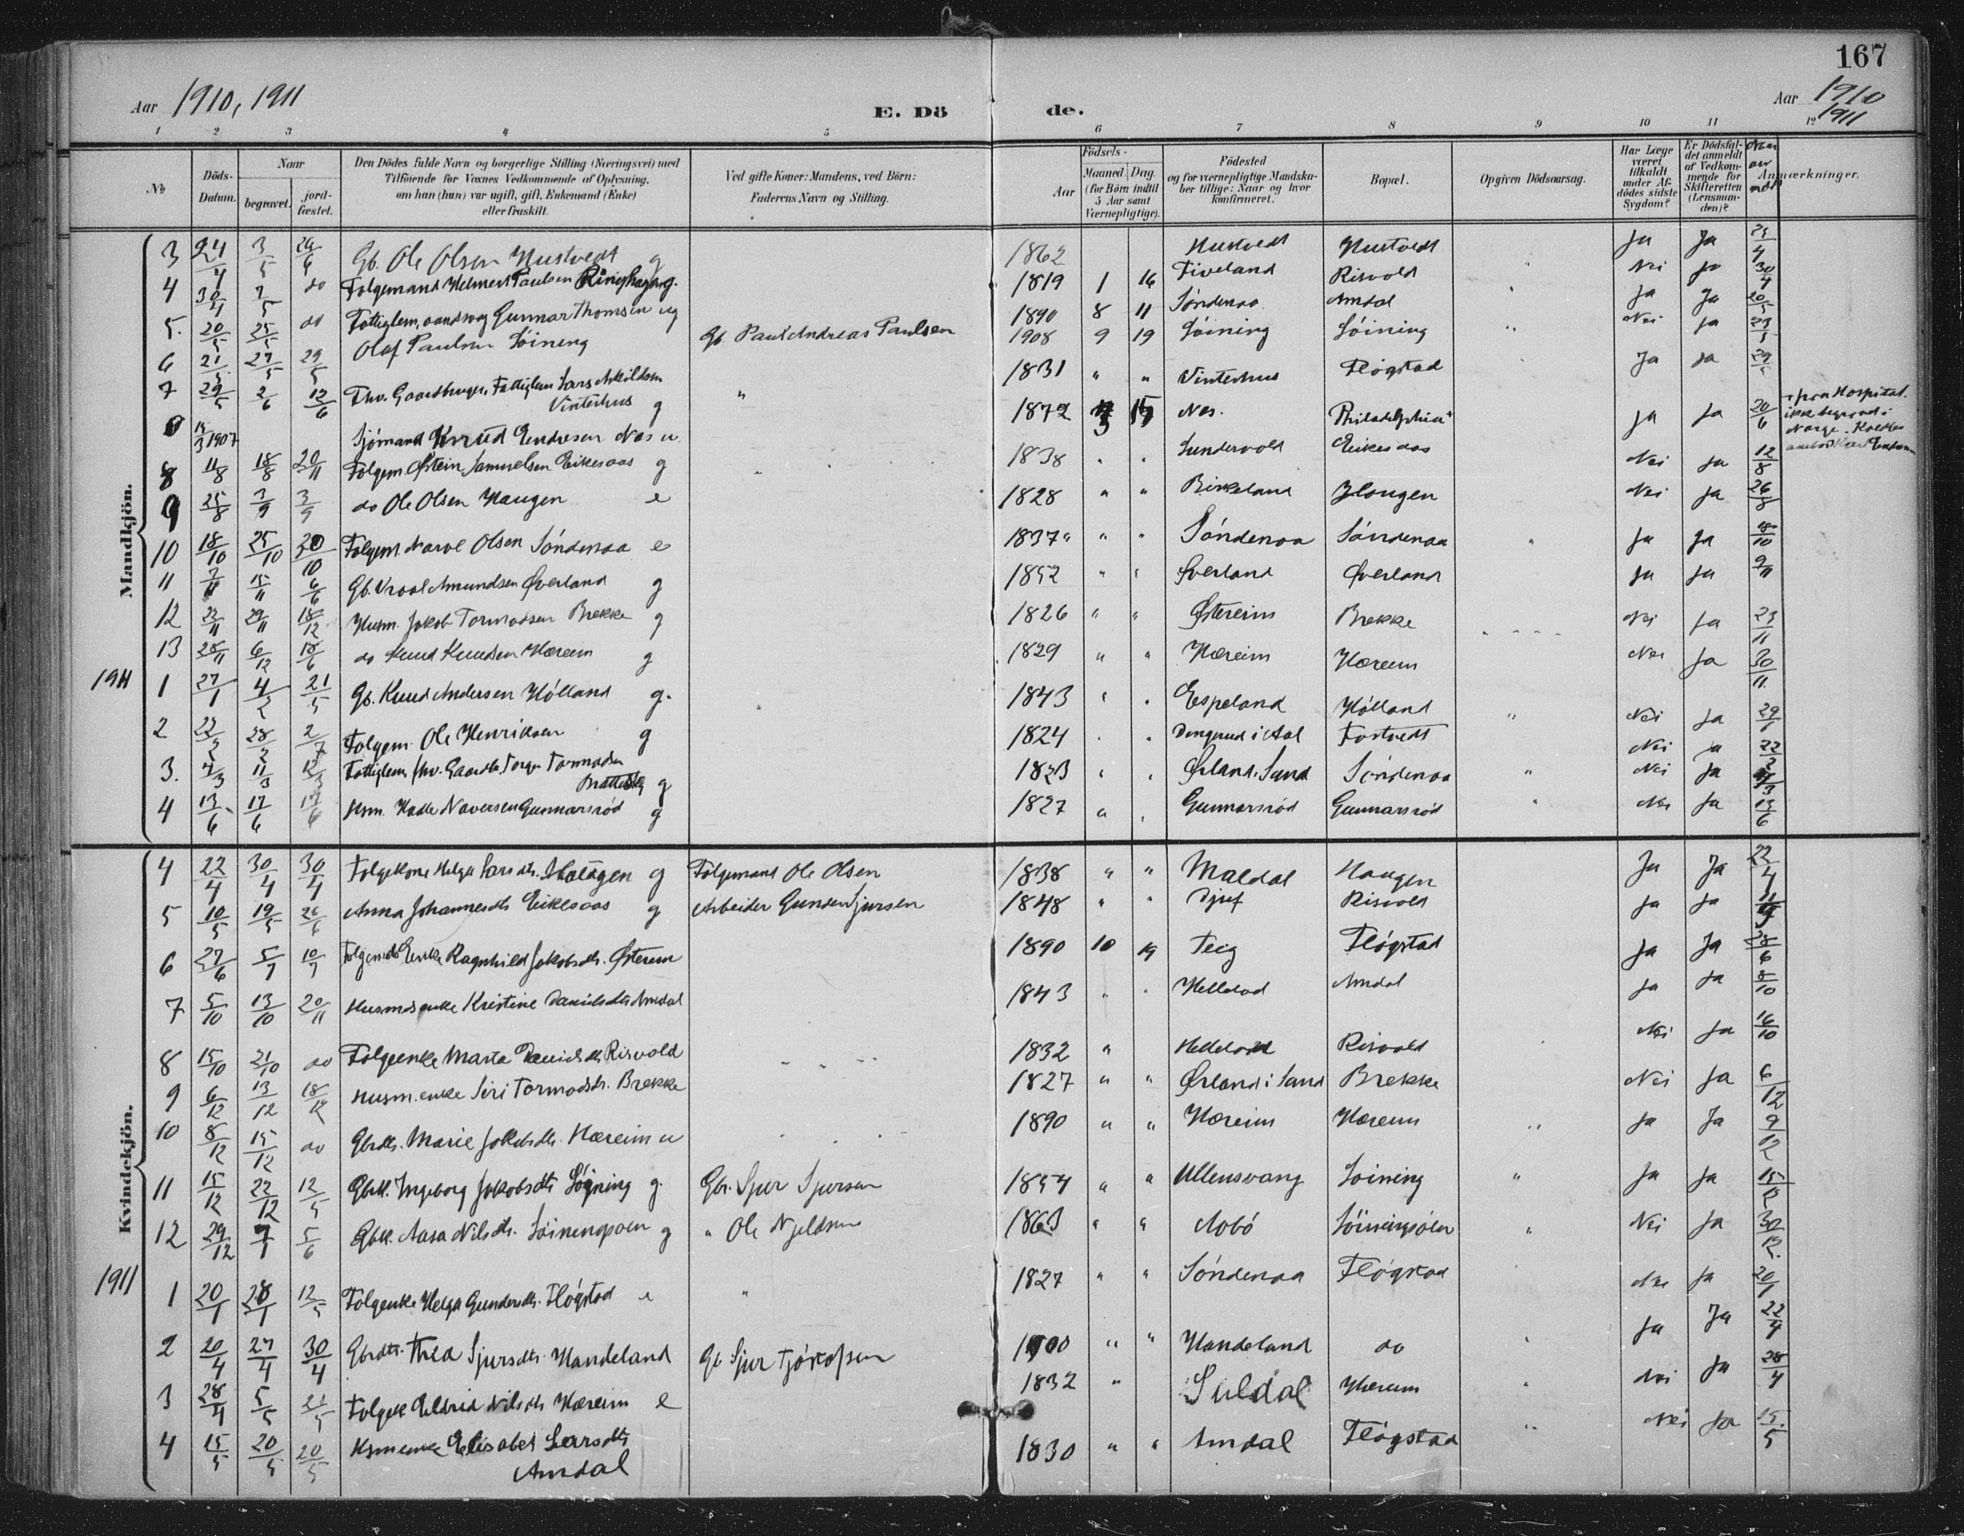 167
Aar 1910, 1911
E. Dö de.
Aar 1910
1911
1 2 3 4 5 6 7 8 9 10 11 12
No
Döds-Datum.
Naar
begravet.
jord-fæstet.
Den Dödes fulde Navn og borgerlige Stilling (Næringsvei) med
Tilföiende for Voxnes Vedkommende af Oplysning,
om han (hun) var ugift, gift, Enkemand (Enke)
eller fraskilt.
Ved gifte Koner: Mandens, ved Börn:
Faderens Navn og Stilling.
Födsels-
Aar
Maaned. Dag.
(for Börn indtil
5 Aar samt
Værnepligtige).
Födested
og for værnepligtige Mandska-
ber tillige: Naar og hvor
konfirmeret.
Bopæl.
Opgiven Dödsaarsag.
Har Læge
været
tilkaldt
under Af-
dödes sidste
Sygdom?
Er Dödsfal-
det anmeldt
af Vedkom-
mende for
Skifteretten
(Lensman-
den)?
Anmærkninger.
Mandkjön.
3 24/4 3/5 Gb. Ole Olsen Hustvedt g 1862 Hustvedt Hustvedt Ja Ja 25/4
4 30/4 7/5 do Folgemand Helmert Paulsen g. 1819 1 16 Fiveland Risvold Nei Ja 30/4
5. 20/5 25/5 do Gunnar Thomsen ug 1890 8 11 Söndenaa Amdal Ja Ja 20/5
6 21/5 27/5 29/5 Olaf Paulsen Söining Gb. Paul Andreas Paulsen 1908 9 19 Söining Söining Nei Ja 23/5
7 29/5 2/6 12/6 Fhv. Gaardbruger, Fattiglem Lars Askildsen
Vinterhus g " 1831 " " Vinterhus Flögstad Ja Ja 29/5
15/3 1907 Sjömand Knud Endresen Nes u. 1872 3 15 Nes. Philadelphia Ja Ja 20/6
fra Hospital.
ikke begravet i
Norge.
8 11/8 18/8 20/11 Folgem. Østein Samuelsen Eikesaas g 1838 Sundervold Eikesaas Nei Ja 12/8
9 25/8 3/9 3/9 do Ole Olsen Haugen e 1828 " " Birkeland Haugen Nei Ja 26/8
10 18/10 25/10 30/10 Folgem. Narve Olsen Söndenaa e 1837 " " Söndenaa Söndenaa Ja Ja 18/10
11 7/11 15/11 6/6 Gb. Vraal Amundsen Øverland g 1852 " Øverland Øverland Ja Ja 9/11
12 22/11 29/11 18/12 Husm. Jakob Tormodsen Brekke g 1826 " " Østereim Brekke Nei Ja 23/11
13 28/11 6/12 18/6 do Knud Knudsen Hæreim g 1829 " " Hæreim Hæreim Nei Ja 30/11
1911
1 27/1 4/2 21/5 Gb. Knud Andersen Hölland g. 1843 " Espeland Hölland Nei Ja 29/1
2 22/2 28/2 2/7 Folgem. Ole Henriksen g 1824 i Aal Fostvedt Nei Ja 22/2
3. 4/3 11/3 12/3 Fattiglem, fhv. Gaardbr. Torger Tormodsen
g 1823 Ørland i Sand Söndenaa " Nei Ja
4 13/6 17/6 17/6 Hsm. Halle Naversen Gunnarsröd g 1827 " Gunnarsröd Gunnarsröd Nei Ja 15/6
Kvindekjön.
4 22/4 30/4 30/4 Folgekone Helga Larsdtr. Haugen g Folgemand Ole Olsen 1838 " " Maldal Haugen Ja Ja 22/4
5 10/5 19/5 26/6 Anna Johannesdtr Eikesaas g Arbeider Gunder Sjursen 1848 " Djuf Risvold Ja Ja
6 27/6 5/7 10/7 Folgemds Enke Ragnhild Jakobsdtr. Østereim 1890 10 19 Teig Flögstad Ja Ja 28/6
7 5/10 13/10 20/11 Husmdsenke Kristine Danielsdtr Amdal 1843 " Helleland Amdal Ja Ja 8/10
8 15/10 21/10 do Folgeenke Marta Danielsdtr. Risvold 1832 " Helleland Risvold Nei Ja 16/10
9 6/12 13/12 18/12 Husm.enke Siri Tormodsdtr. Brekke 1827 " " Ørland i Sand Brekke Nei Ja 6/12
10 8/12 15/12 do Gbrdtr. Marie Jakobsdtr. Hæreim u 1890 " " Hæreim Hæreim Ja Ja 9/12
11 15/12 22/12 12/5 Gbrk. Ingeborg Jakobsdtr Söining g. Gbr. Sjur Sjursen 1854 " " Ullensvang Söining " Ja Ja 15/12
12 29/12 7/1 5/6 Gbk. Aasa Nilsdtr. Söiningsöen g " Ole Njeldsen 1863 " " Aabö Söiningsöen " Nei Ja 30/12.
1911
1 20/1 28/1 12/5 Folgenke Helga Gundersdtr. Flögstad e " 1827 " " Söndenaa Flögstad Nei Ja 20/1
2 20/4 27/4 30/4 Gbrdtr. Thea Sjursdtr. Handeland Gb. Sjur 1900 " " Handeland do Ja Ja 22/4
3 28/4 5/5 21/5 Folgek. Eldrid Nilsdtr Hæreim e 1832 " Suldal Hæreim Nei Ja 28/4
4 15/5 20/5 20/5 Hsmenke Elisabet Larsdtr
Amdal 1830 " " Amdal Flögstad Nei Ja 15/5